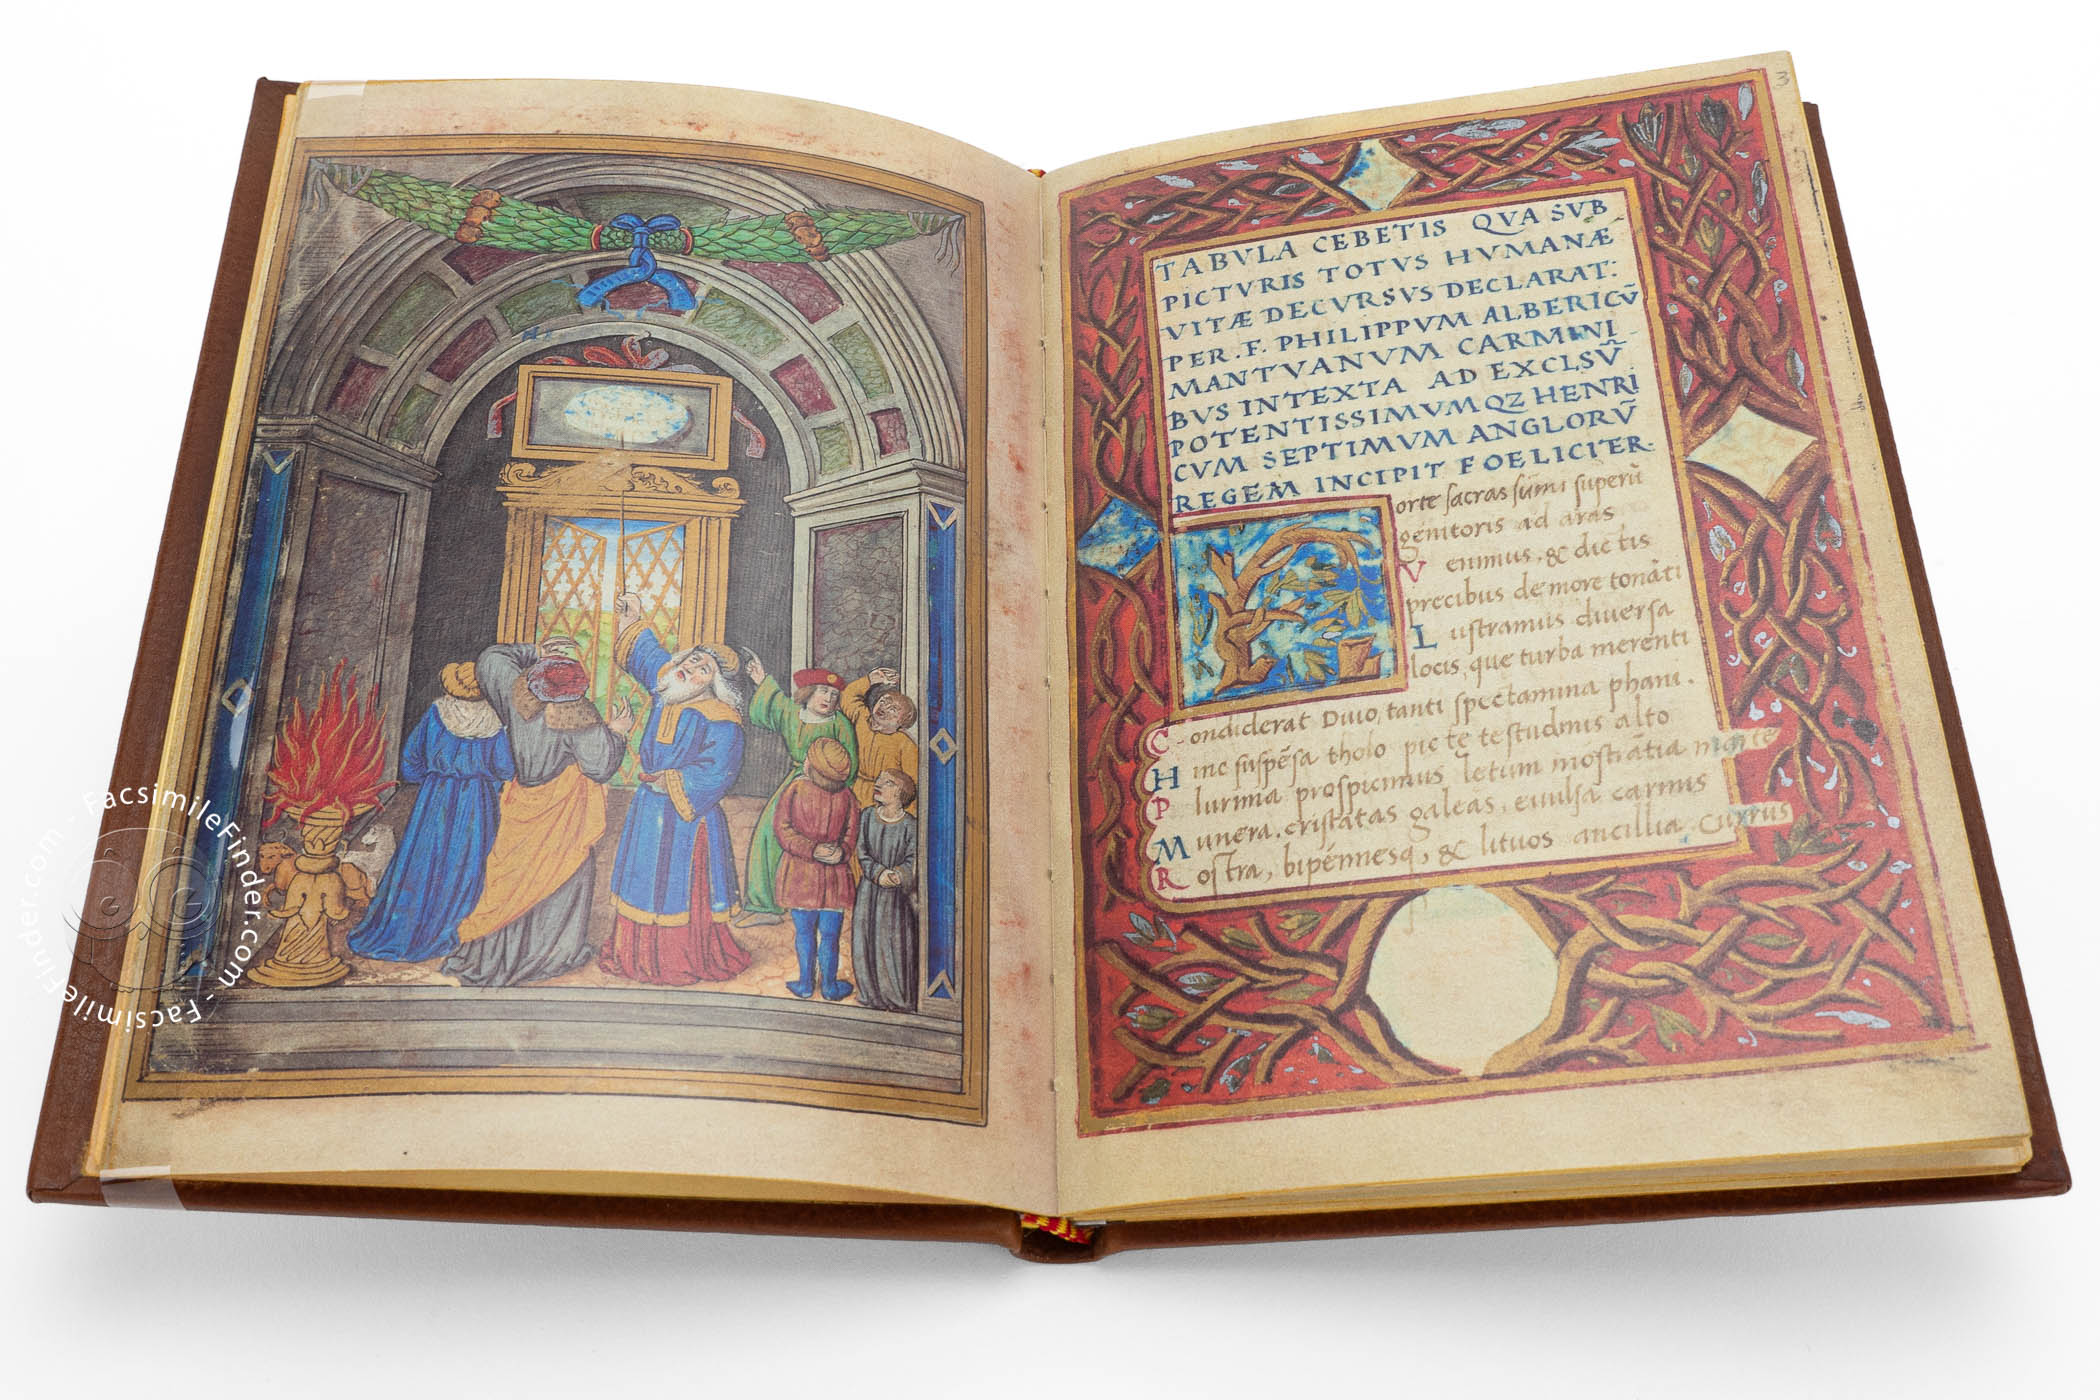 3
TABVLA CEBETIS QVA SVB
PICTVRIS TOTVS HVMANÆ
VITÆ DECVRSVS DECLARAT:
PER .F. PHILIPPVM ALBERICŪ
MANTVANVM CARMINI
BVS INTEXTA AD EXCLSV̄
POTENTISSIMVMQZ HENRI
CVM SEPTIMVM ANGLORV̄
REGEM INCIPIT FOELICITER.
Forte sacras sūmi superū
genitoris ad aras
Venimus, & dictis
precibus de more tonāti
Lustramus diuersa
locis, que turba merenti
Condiderat Diuo, tanti spectamina phani.
Hinc suspēsa tholo picte testudinis alto
Plurima prospicimus letum mostrātia marte
Munera. cristatas galeas, euulsa carinis
Rostra, bipénnesq, & lituos ancillia currus
FacsimileFinder.com - FacsimileFinder.com - FacsimileFinder.com